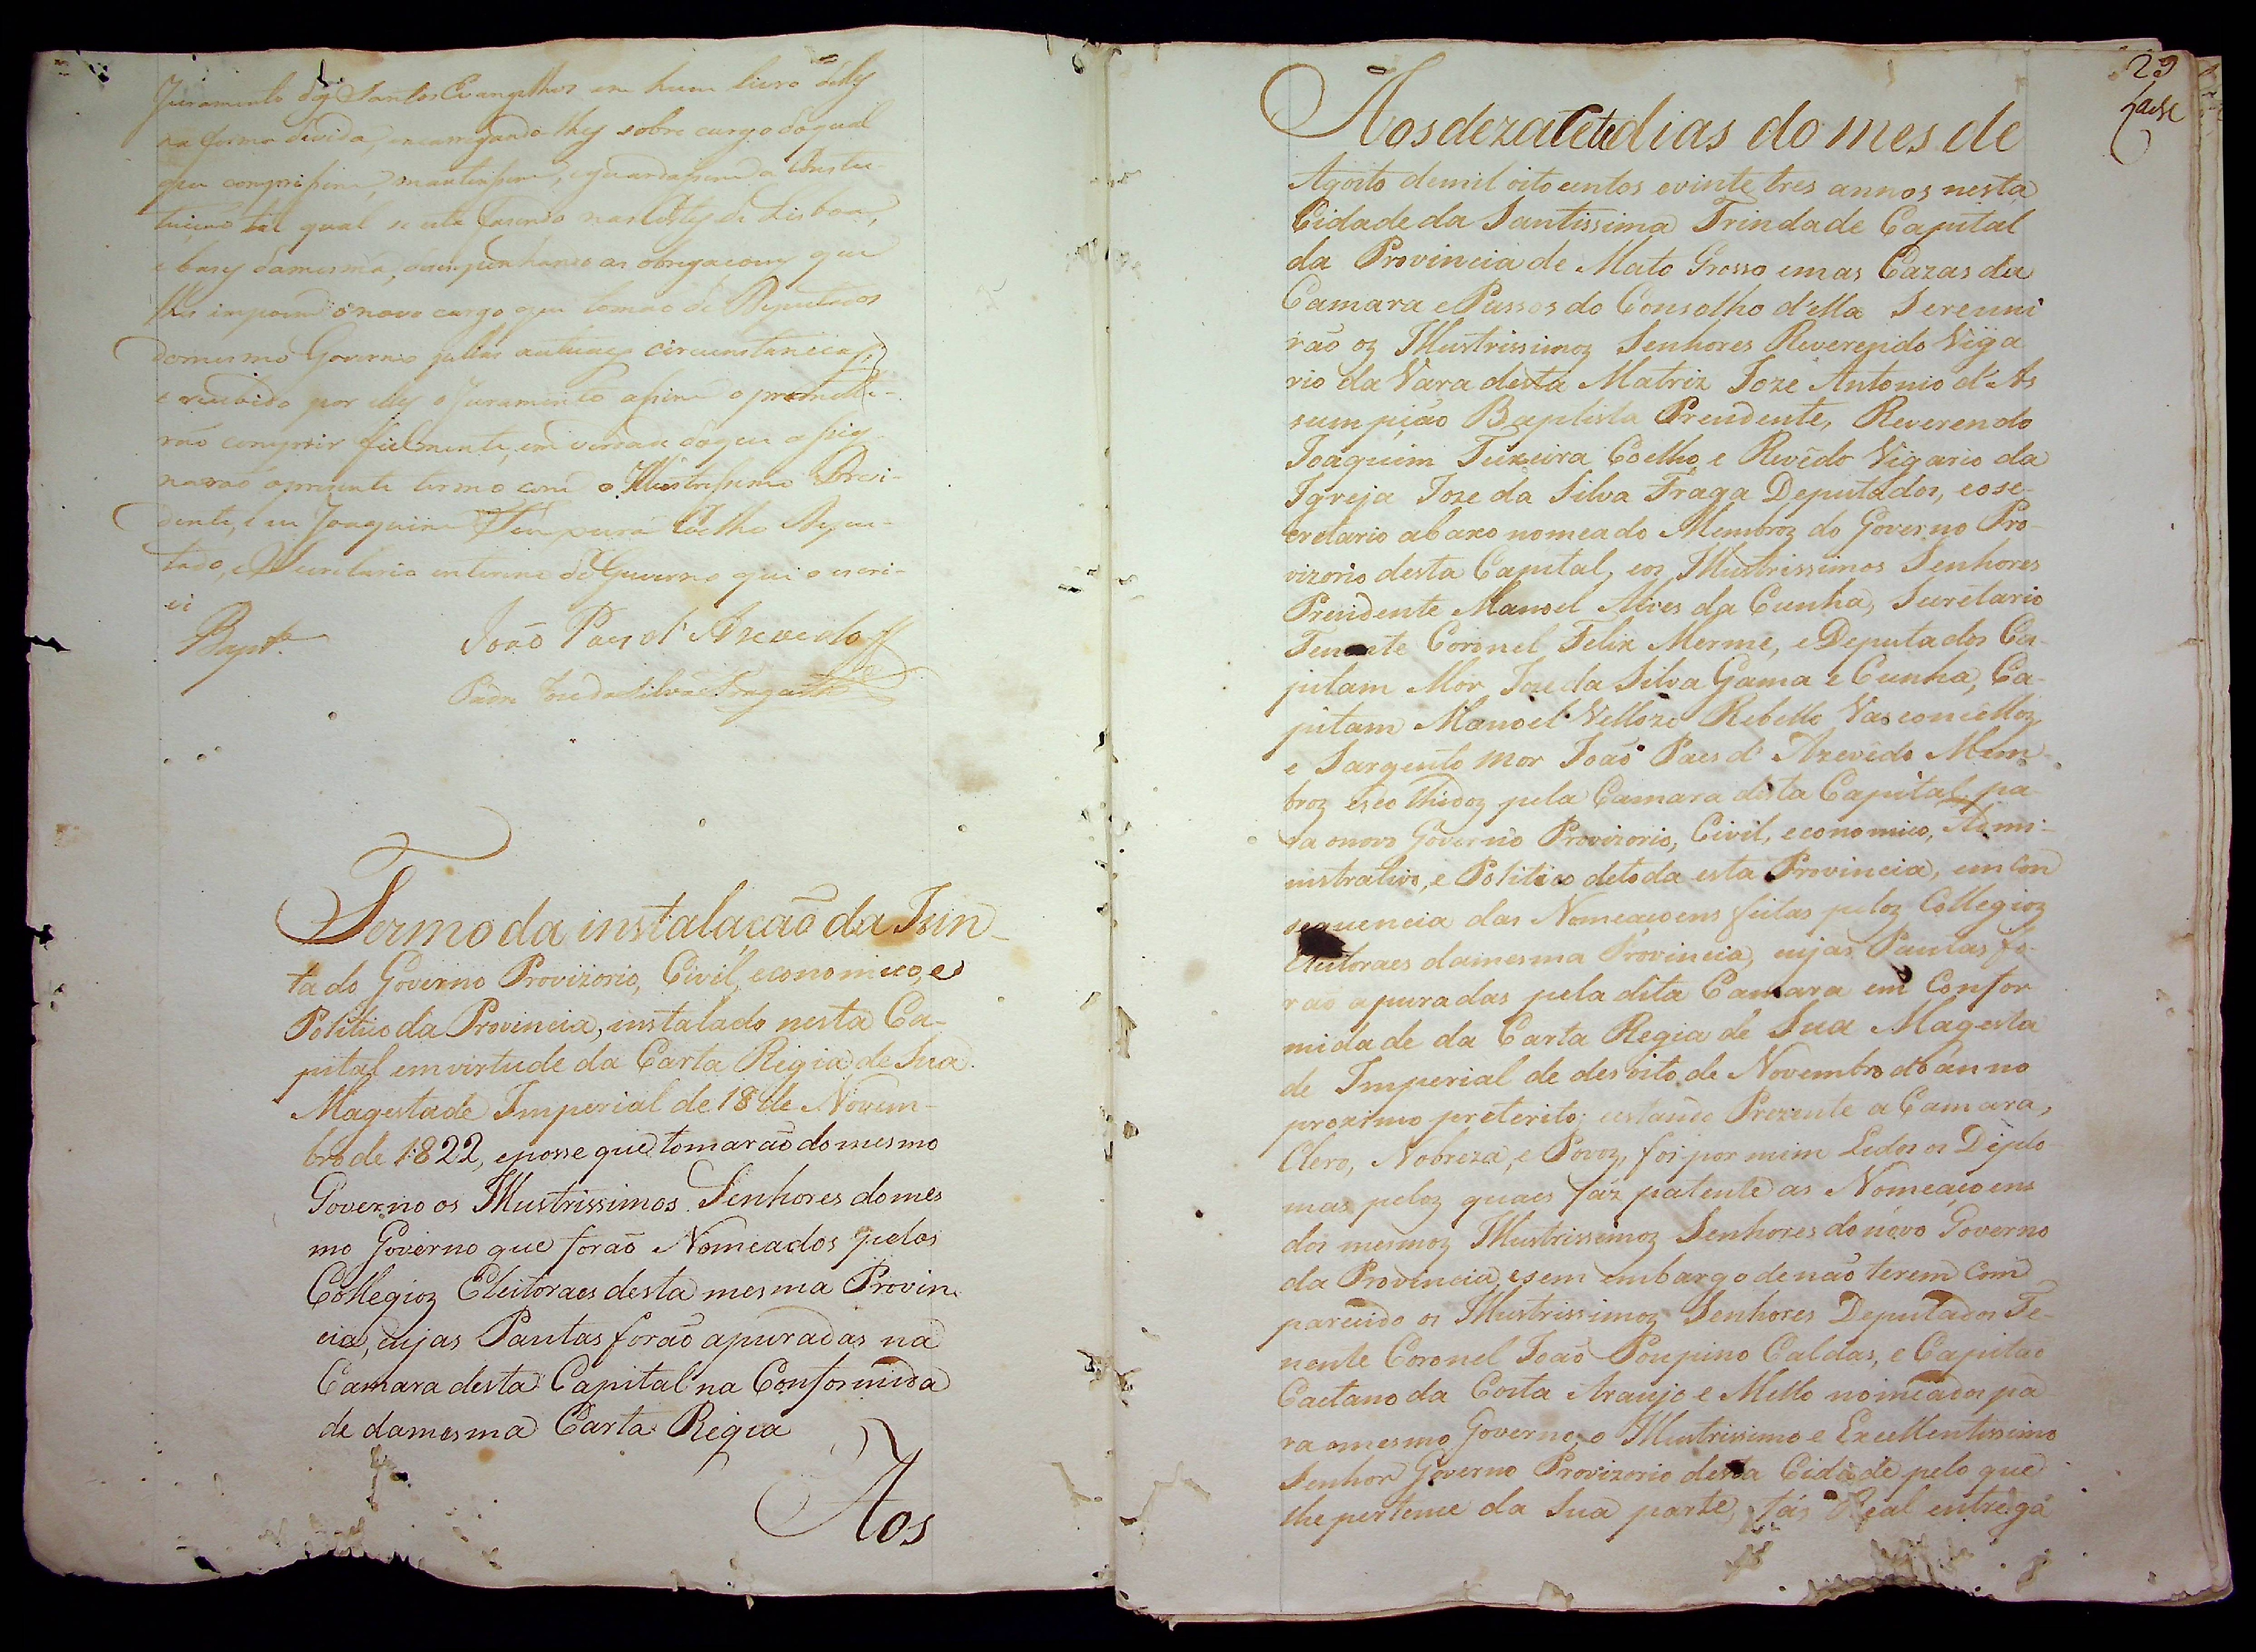 Juramento dos Santos Evangelhos em hum livro delles
na forma devida, encarregando-lhes sobre cargo do qual
que comprissem, mantivessem, e guardassem a Constu
tuicao tal qual se esta fasendo nas Cortes de Lisboa,
e bases damesma, desempenhando as obrigacoens que
lhes impoem o novo cargo que tomão de Deputados
domesmo Governo pellas actuaes circunstancias,
e recebido por elles o Juramento assim o prometté-
rão comprir fielmente, em verdade doque assig
narão o prezente termo com o Illustrissimo Prezi-
dente, e eu Joaquim Teixeira Coelho Depu-
tado, e Secretario interino do Governo que o escri-
vi
Bapta
João Paes d'Azevedo
Padre Joze da Silva Fraga
Termo da instalação da Jun-
ta do Governo Provizorio, Civil, economico, e
Politico da Provincia, instalado nesta Ca-
pital em virtude da Carta Regia de Sua
Magestade Imperial de 18 de Novem-
bro de 1822, eposse que tomarão do mesmo
Governo os Illustrissimos Senhores domes
mo Governo que forão Nomeados pelos
Collegioz Eleitoraes desta mesma Provin
cia, cujas Pautas forão apuradas na
Camara desta Capital na Conformida
de damesma Carta Regia
Aos
29
Aos dezacete dias do mes de
Agosto demil oito centos evinte tres annos nesta
Cidade da Santissima Trindade Capital
da Provincia de Mato Grosso em as Cazas da
Camara e Passos do Conselho d'ella Sereuni
rão oz Illustrissimoz Senhores Reverendo Viga
rio da Vara desta Matriz Joze Antonio d'As
sumpição Baptista Prezidente, Reverendo
Joaquim Teixeira Coelho, e Revêdo Vigario da
Igreja Joze da Silva Fraga Deputados, eose-
cretario abaxo nomeado Membroz do Governo Pro-
vizorio desta Capital, eos Illustrissimos Senhores
Prezidente Manoel Alves da Cunha, Secretario
Tenente Coronel Felix Merme, e Deputados Ca-
pitam Mor Joze da Silva Gama e Cunha, Ca-
pitam Manoel Vellozo Rebello Vasconcelloz,
e Sargento Mor João Paes d'Azevedo Mem-
broz escolhidoz pela Camara desta Capital pa
ra onovo Governo Provizorio, Civil, economico, Admi-
nistrativo, e Politico detoda esta Provincia, em con
sequencia das Nomeaçoens feitas peloz Collegioz
Eleitoraes damesma Provincia, cujas Pautas fo-
rão apuradas pela dita Camara em Confor
midade da Carta Regia de Sua Magesta
de Imperial de des oito de Novembro do ánno
proximo preterito; estando Prezente a Camara,
Clero, Nobreza, e Povoz, foi por mim Lidos os Diplo
mas peloz quaes faz patente as Nomeaçoens
dos mesmoz Illustrissimoz Senhores do novo Governo
da Provincia, esem embargo de não terem com
parecido os Illustrissimoz Senhores Deputados Te-
nente Coronel João Poupino Caldas, e Capitão
Caetano da Costa Araujo e Mello nomeados pa
ra omesmo Governo, o Illustrissimo e Excellentissimo
Senhor Governo Provizorio desta Cidade pelo que
lhe pertence da Sua parte, fás Real entrega